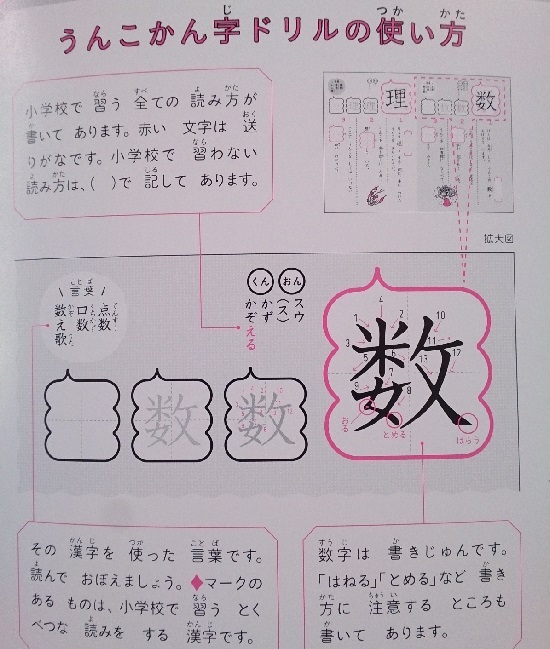 うんこかん字ドリルの使い方
小学校で習う全ての読み方が
書いてあります。赤い文字は送
りがなです。小学校で習わない
読み方は、( )で記してあります。
理
数
拡大図
\言葉/
点数
口数
数え歌
おん
スウ
(ス)
くん
かず
かぞえる
数
1
2
3
4
5
6
7
8
9
10
11
12
13
おる
とめる
はらう
数
数
その漢字を使った言葉です。
読んでおぼえましょう。◆マークの
あるものは、小学校で習うとく
べつな読みをする漢字です。
数字は書きじゅんです。
「はねる」「とめる」など書き
方に注意するところも
書いてあります。